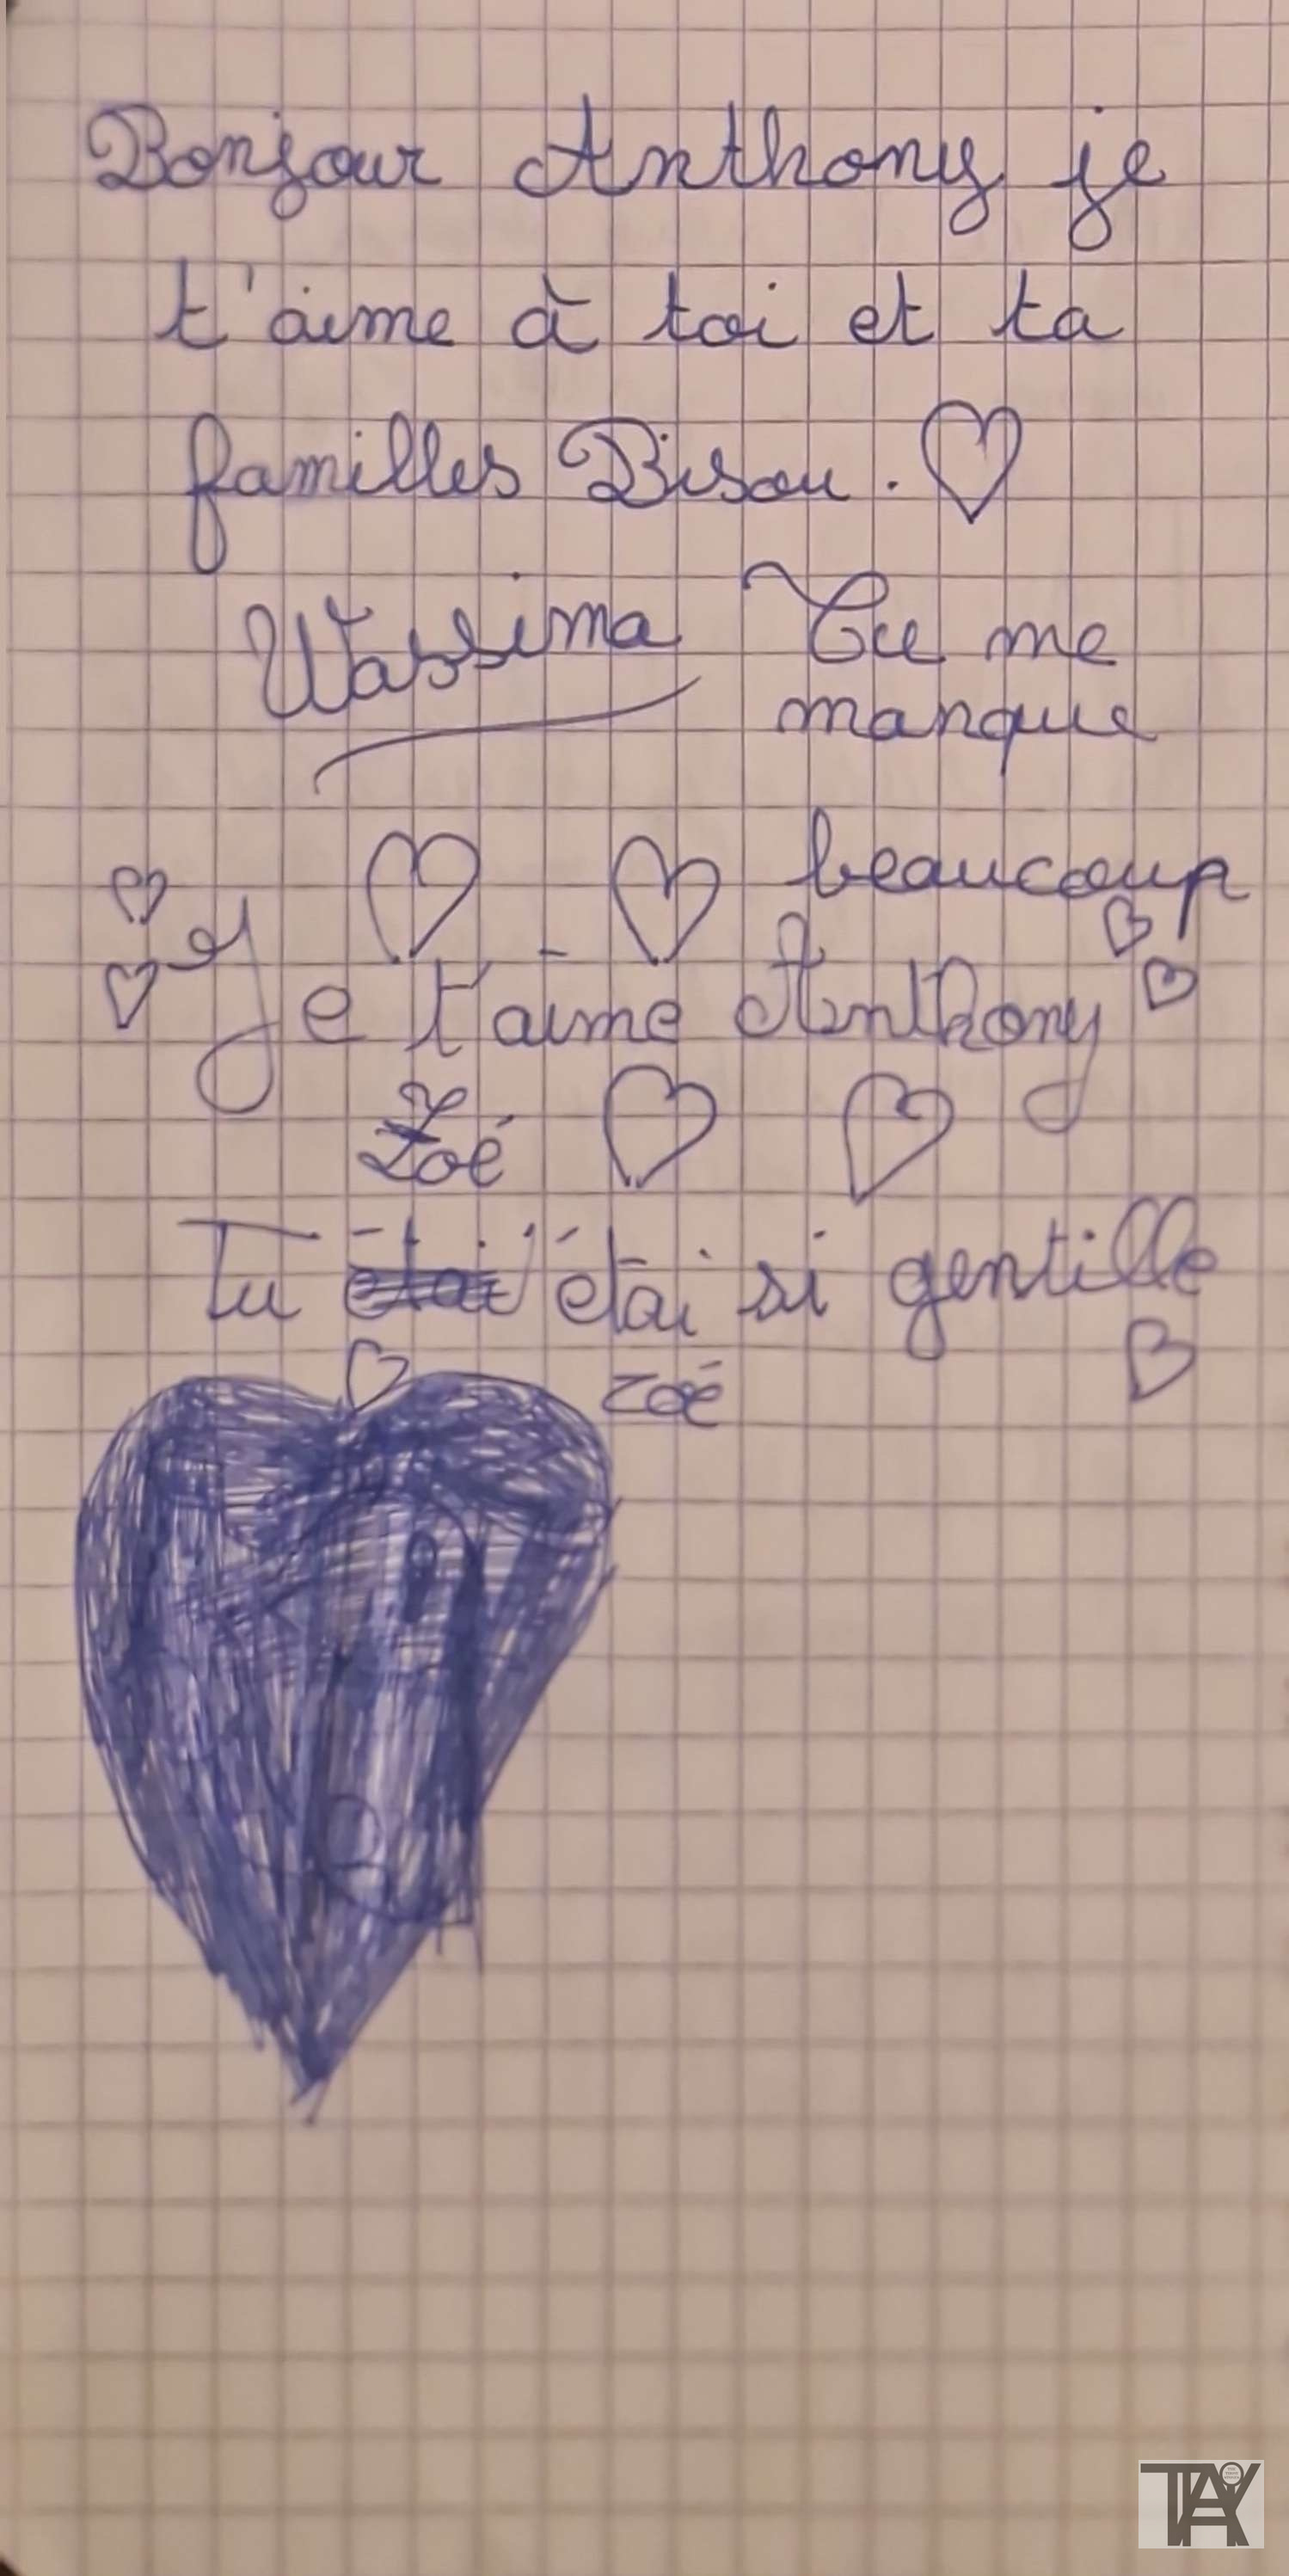 Bonjour Anthony je
t'aime à toi et ta
familles Bisou. ♡
Wassima
Tu me
manque
beaucoup
Je t'aime Anthony
Zoé
Tu étai étai si gentille
zoé
TAY